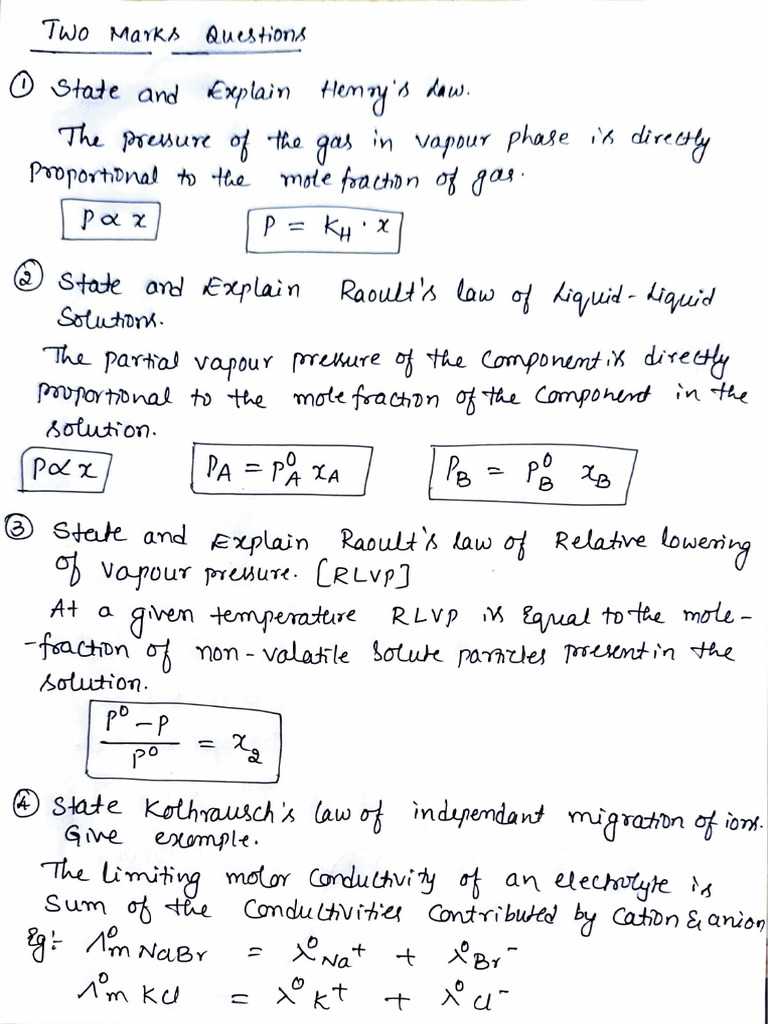 Two Marks Questions
① State and Explain Henry's Law.
The pressure of the gas in vapour phase is directly
proportional to the mole fraction of gas.
P ∝ x P = K_H · x
② State and Explain Raoult's law of Liquid-Liquid
Solutions.
The partial vapour pressure of the Component is directly
proportional to the mole fraction of the Component in the
solution.
P ∝ x P_A = P⁰_A x_A P_B = P⁰_B x_B
③ State and Explain Raoult's law of Relative lowering
of vapour pressure. [RLVP]
At a given temperature RLVP is Equal to the mole-
-fraction of non-valatile Solute particles present in the
solution.
P⁰ - P / P⁰ = x₂
④ State Kolhrausch's law of independant migration of ions.
Give exemple.
The Limiting molor Conductivity of an electrolyte is
Sum of the Conductivities Contributed by Cation & anion
Eg:- Λ⁰m NaBr = λ⁰Na⁺ + λ⁰Br⁻
Λ⁰m KCl = λ⁰K⁺ + λ⁰Cl⁻